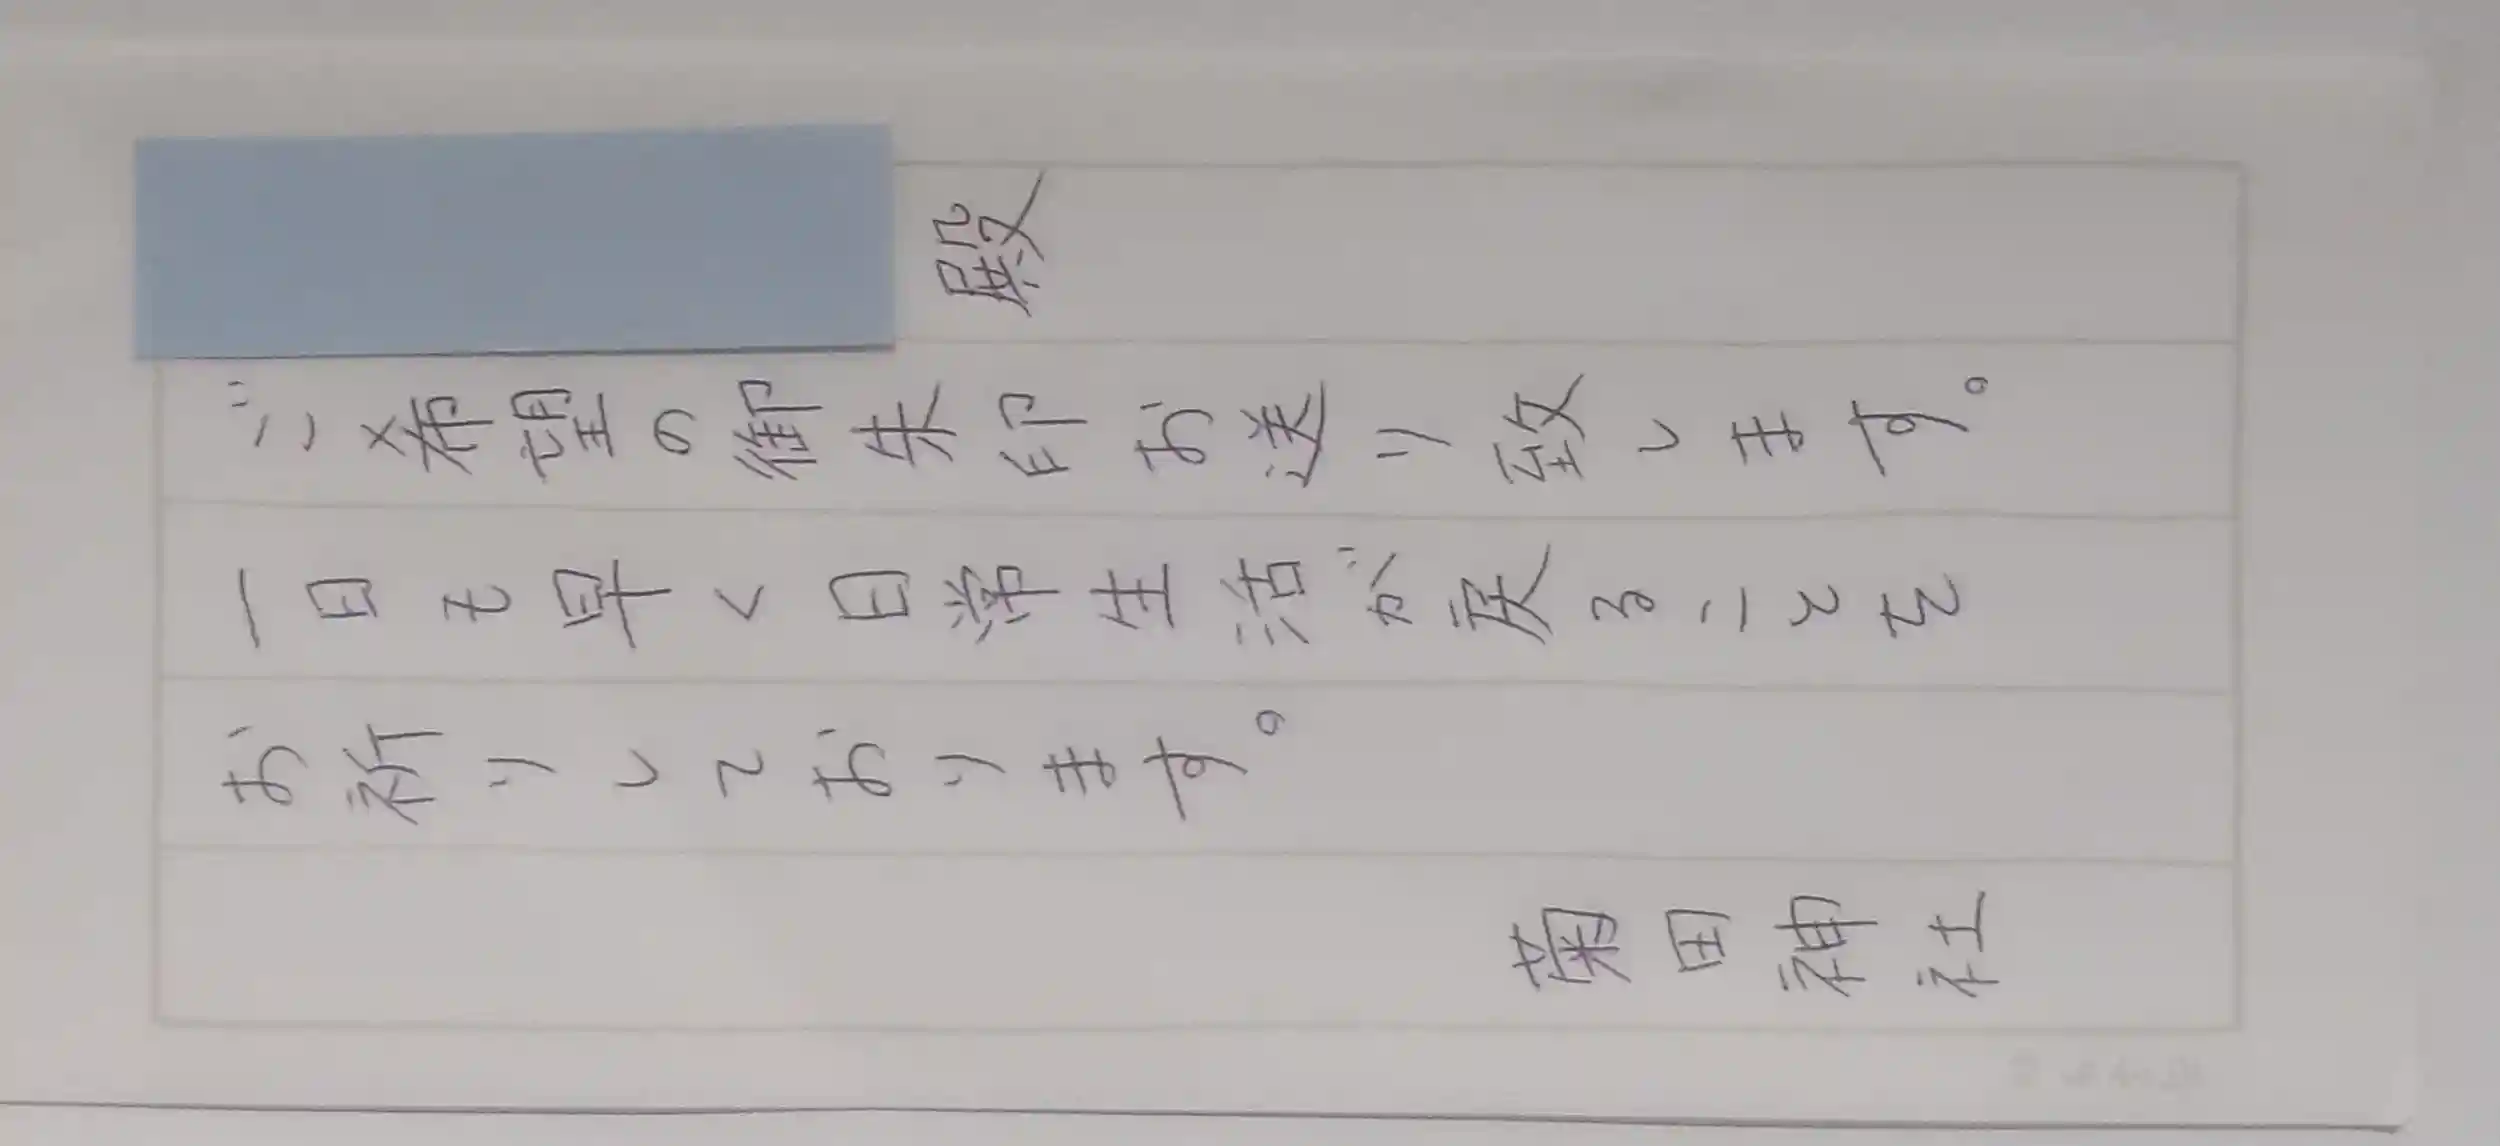 殿
ご希望の御朱印お送り致します。
一日も早く日常生活が戻ることを
お祈りしております。
菊田神社